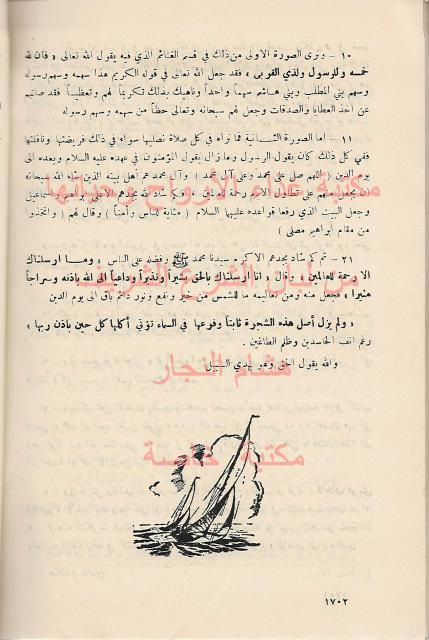 ١٠ - وترى الصورة الاولى من ذلك في قسم الغنائم الذي فيه يقول الله تعالى « فان لله
خمسه وللرسول ولذي القربى » فقد جعل الله تعالى في قوله الكريم هذا سهمه وسهم رسوله
وسهم بني المطلب وبني هاشم سهماً واحداً وناهيك بذلك تكريماً لهم وتعظيماً فقد صانهم
عن أخذ العطايا والصدقات وجعل لهم سبحانه وتعالى حظاً من سهمه وسهم رسوله
١١ - اما الصورة الثانية فما نراه في كل صلاة نصليها سواء في ذلك فريضتها ونافلتها
ففي كل ذلك كان يقول الرسول وما زال يقول المؤمنون في عهده عليه السلام وبعده الى
يوم الدين « اللهم صل على محمد وعلى آل محمد » وآل محمد هم أهل بيته الذين شاء الله سبحانه
ان يجعل منهم على تطاول الايام رحمة للعالمين
وجعل البيت الذي رفعا قواعده عليهما السلام ( مثابة للناس وأمناً ) وقال لهم ( واتخذوا
من مقام ابراهيم مصلى )
٢١ - ثم كم شاد بمجدهم الاكرم سيدنا محمد ﷺ وفضله على الناس « وما ارسلناك
الا رحمة للعالمين » وقال « انا ارسلناك بالحق بشيراً ونذيراً وداعياً الى الله باذنه وسراجاً
منيراً » فجعل منه ومن تعاليمه ما للشمس من خير ونفع ونور دائم باق الى يوم الدين
« ولم يزل أصل هذه الشجرة ثابتاً وفرعها في السماء تؤتي أكلها كل حين باذن ربها »
رغم انف الحاسدين وظلم الطاغين .
والله يقول الحق وهو يهدي السبيل
هشام النجار
مكتبة خاصة
١٧٠٢